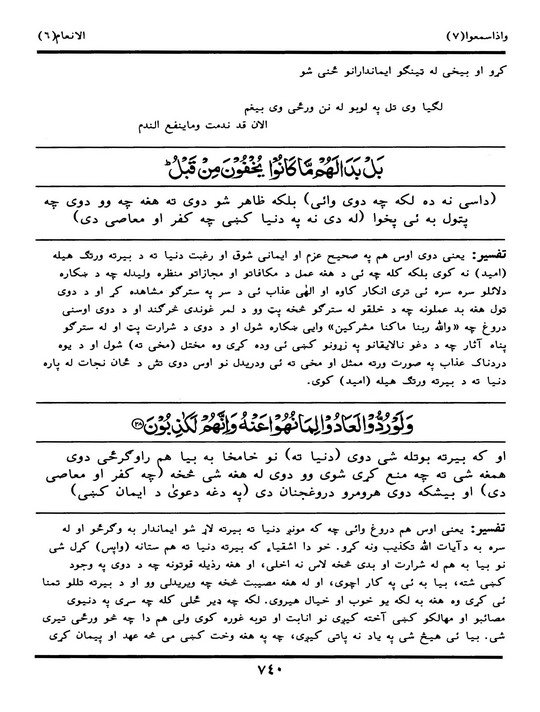 واذاسمعوا(٧) الانعام(٦)
کړو او بیخی له ټینګو ایماندارانو څنی شو
لګیا وی تل په لوبو له نن ورځی وی بیغم
الان قد ندمت وماینفع الندم
بَلْ بَدَا لَهُمْ مَّا كَانُوْا يُخْفُوْنَ مِنْ قَبْلُ ؕ
(داسی نه ده لکه چه دوی وائی) بلکه ظاهر شو دوی ته هغه چه وو دوی چه
پټول به ئی پخوا (له دی نه په دنیا کښی چه کفر او معاصی دی)
تفسیر: یعنی دوی اوس هم په صحیح عزم او ایمانی شوق او رغبت دنیا ته د بیرته ورتګ هیله
(امید) نه کوی بلکه کله چه ئی د هغه عمل د مکافاتو او مجازاتو منظره ولیدله چه د ښکاره
دلائلو سره سره ئی تری انکار کاوه او الٰهی عذاب ئی د سر په سترګو مشاهده کړ او د دوی
ټول هغه بد عملونه چه د خلقو له سترګو څخه پټ وو د لمر غوندی څرګند او د دوی اوسنی
دروغ چه «والله ربنا ماکنا مشرکین» وایی ښکاره شول او د دوی د شرارت پټ او له سترګو
پناه آثار چه د دغو نالایقانو په زړونو کښی ئی وده کړی وه مختل (مخی ته) شول او د یوه
دردناک عذاب په صورت ورته ممثل او مخی ته ئی ودریدل نو اوس دوی تش د ځان نجات له پاره
دنیا ته د بیرته ورتګ هیله (امید) کوی.
وَلَوْ رُدُّوْا لَعَادُوْا لِمَا نُهُوْا عَنْهُ وَاِنَّهُمْ لَكٰذِبُوْنَ ﴿۲۸﴾
او که بیرته بوتله شی دوی (دنیا ته) نو خامخا به بیا هم راوګرځی دوی
همغه شی ته چه منع کړی شوی وو دوی له هغه شی څخه (چه کفر او معاصی
دی) او بیشکه دوی هرومرو دروغجنان دی (په دغه دعویٰ د ایمان کښی)
تفسیر: یعنی اوس هم دروغ وائی چه که مونږ دنیا ته بیرته لاړ شو ایماندار به وګرځو او له
سره به دآیات الله تکذیب ونه کړو. خو دا اشقیاء که بیرته دنیا ته هم ستانه (واپس) کړل شی
نو بیا به هم له شرارت او بدی څخه لاس نه اخلی، او هغه رذیله قوتونه چه د دوی په وجود
کښی شته، بیا به ئی په کار اچوی، او له هغه مصیبت څخه چه ویریدلی وو او د بیرته تللو تمنا
ئی کړی وه هغه به لکه یو خوب او خیال هیروی. لکه چه ډیر ځلی کله چه سړی په دنیوی
مصائبو او مهالکو کښی آخته کیږی نو انابت او توبه غوره کوی ولی هم دا چه څو ورځی تیری
شی. بیا ئی هیڅ شی په یاد نه پاتی کیږی، چه په هغه وخت کښی می څه عهد او پیمان کړی
٧٤٠